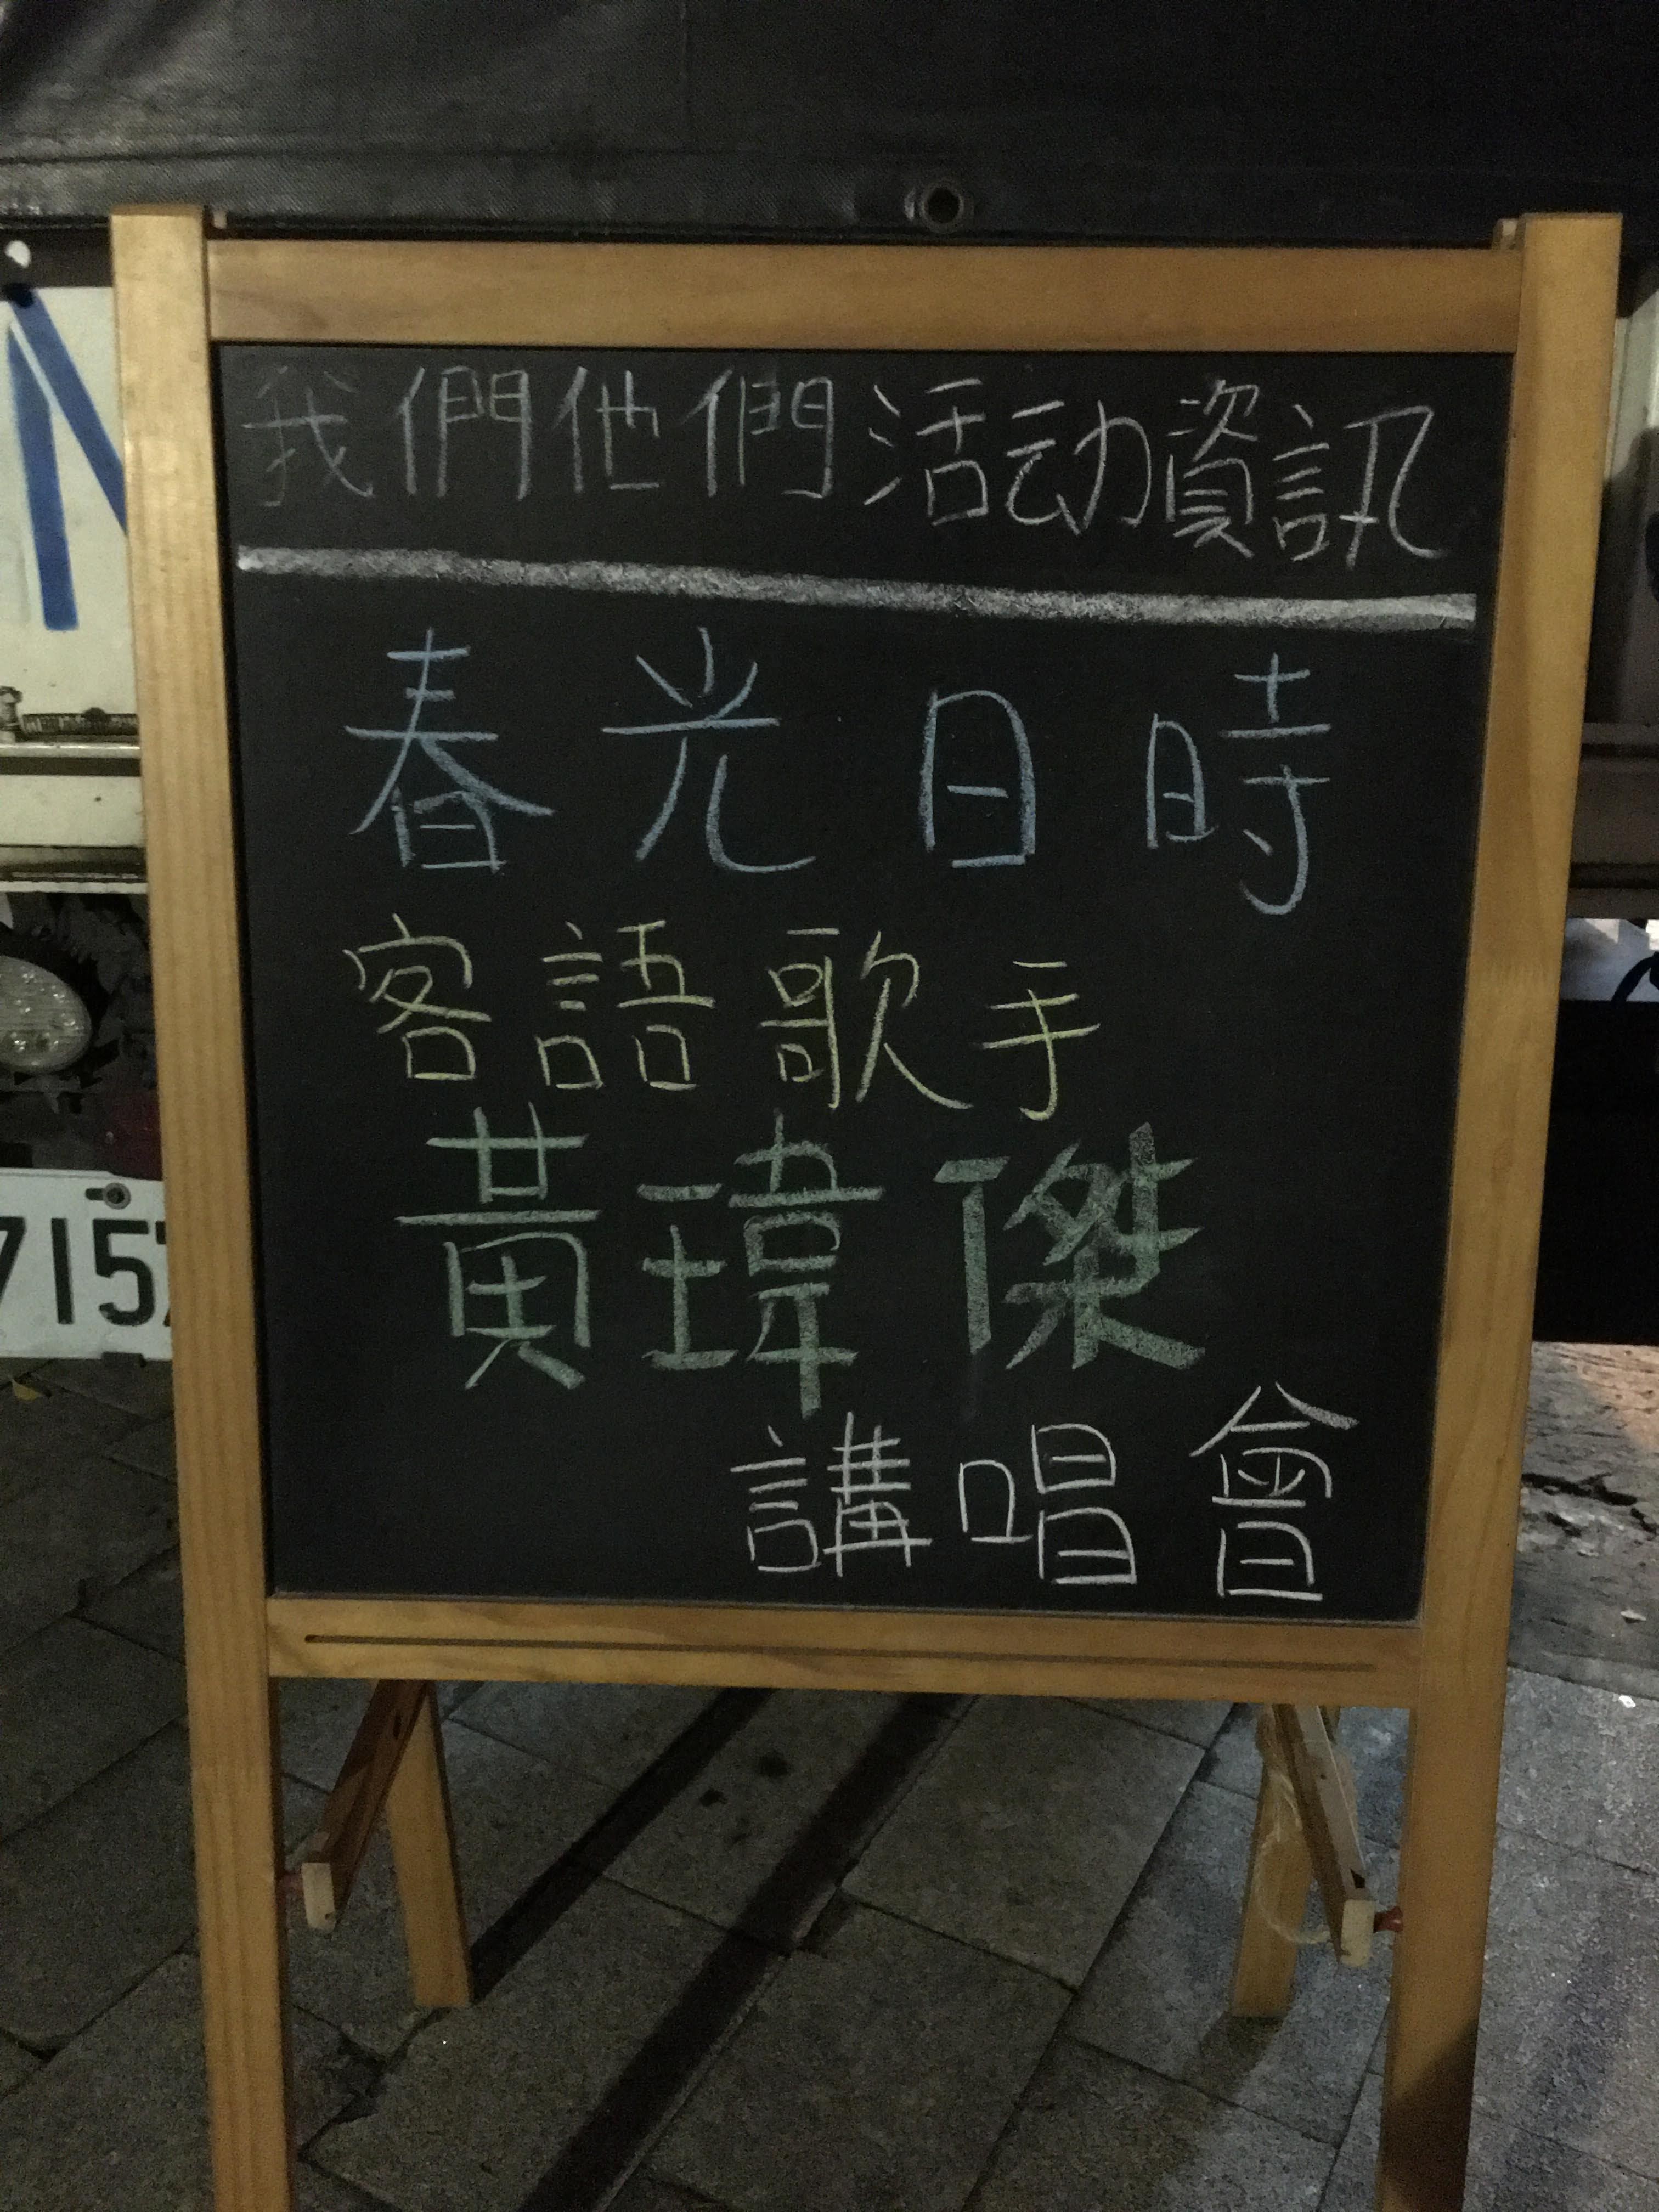 我們他們活动資訊
春光日時
客語歌手
黃瑋傑
講唱會
N
7157